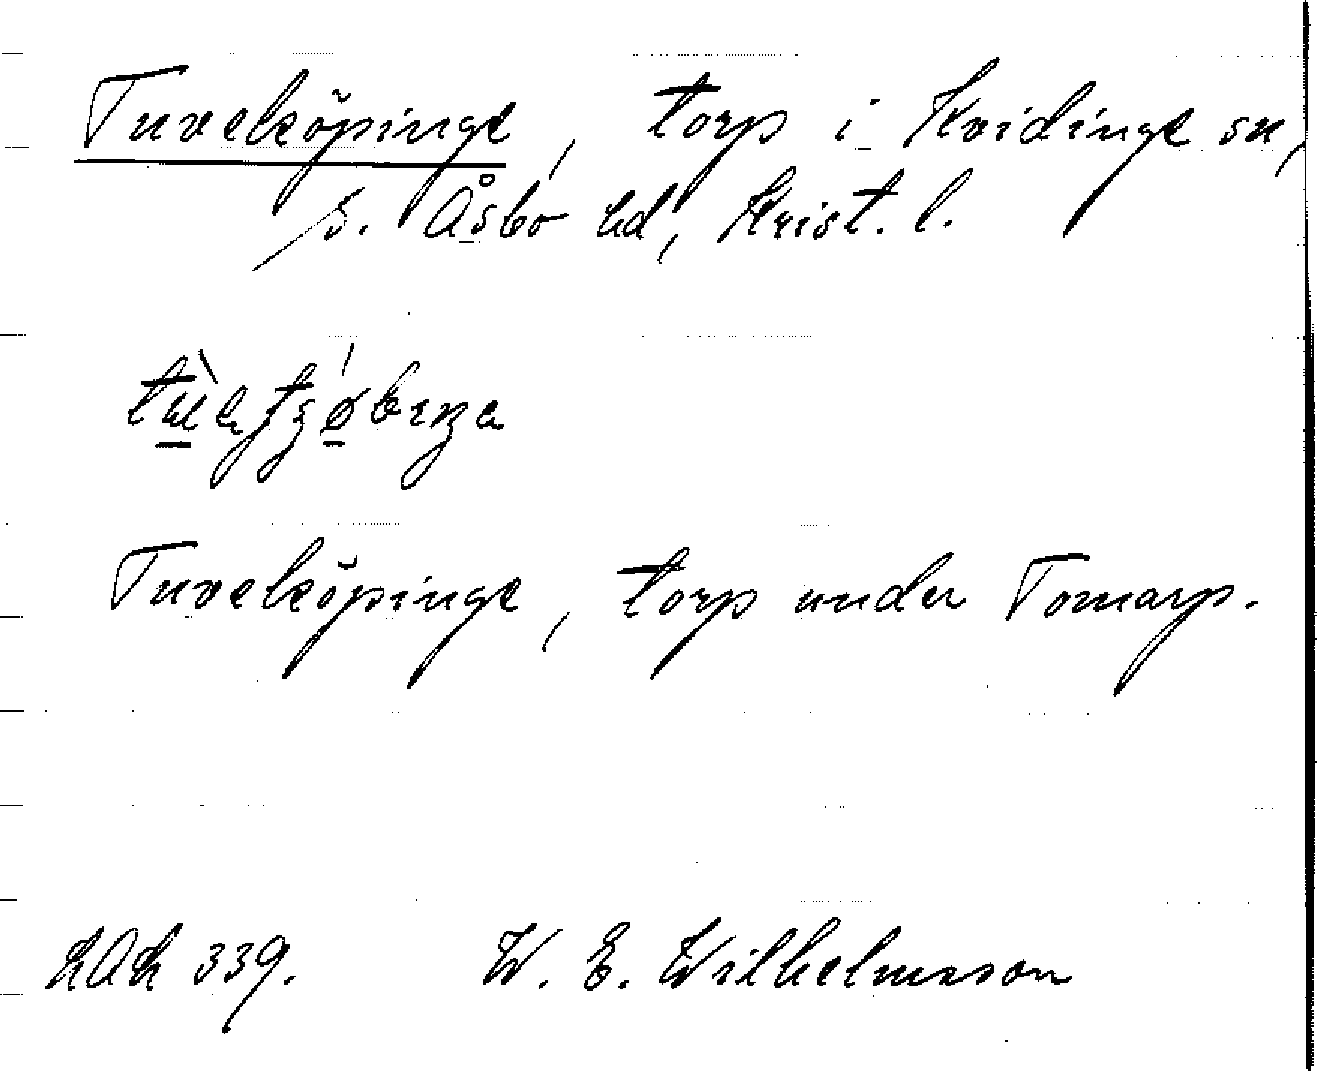 Tuveköpinge, torp i Kvidinge sn,
S. Åsbo hd, Krist. l.
Tuveköpinge, torp under Tomarp.
LAL 339. W. E. Wilhelmsson